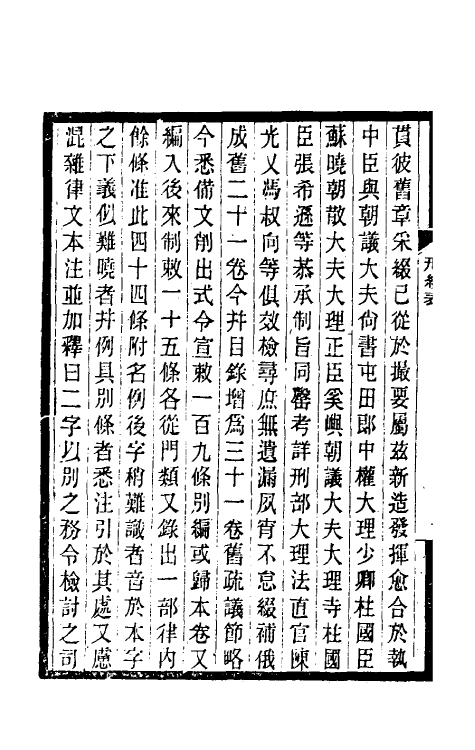 貫彼舊章采綴已從於撮要屬茲新造發揮愈合於執
中臣與朝議大夫尙書屯田郎中權大理少卿柱國臣
蘇曉朝散大夫大理正臣奚嶼朝議大夫大理寺柱國
臣張希遜等恭承制旨同罄考詳刑部大理法直官陳
光乂馮叔向等俱效檢尋庶無遺漏夙宵不怠綴補俄
成舊二十一卷今幷目錄增爲三十一卷舊疏議節略
今悉備文削出式令宣敕一百九條別編或歸本卷又
編入後來制敕一十五條各從門類又錄出一部律內
餘條准此四十四條附名例後字稍難識者音於本字
之下義似難曉者幷例具別條者悉注引於其處又慮
混雜律文本注並加釋曰二字以別之務令檢討之司